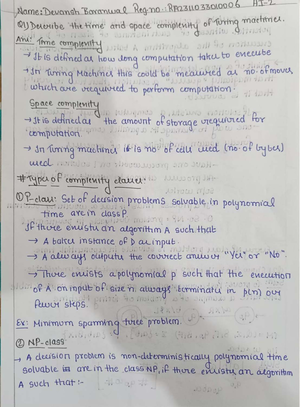 Name: Devansh Porwal Reg no: RA2311033010006 AI-2
Q1) Describe the time and space complexity of Turing machines.
Ans: Time complexity
→ It is defined as how long computation takes to execute
→ In Turing Machines this could be measured as no. of moves
which are required to perform computation.
Space complexity
→ It is defined as the amount of storage required for
computation
→ In Turing machines it is no of cell used (no. of bytes)
used
# Types of complexity classes:
① P-class: Set of decision problems solvable in polynomial
time are in class P.
If there exists an algorithm A such that
→ A takes instance of D as input.
→ A always outputs the correct answer "Yes" or "No".
→ There exists a polynomial p such that the execution
of A on input of size n always terminate in p(n) or
fewer steps.
Ex: Minimum spanning tree problem.
② NP-class
→ A decision problem is non-deterministically polynomial time
solvable is are in the class NP, if there exists an algorithm
A such that :-